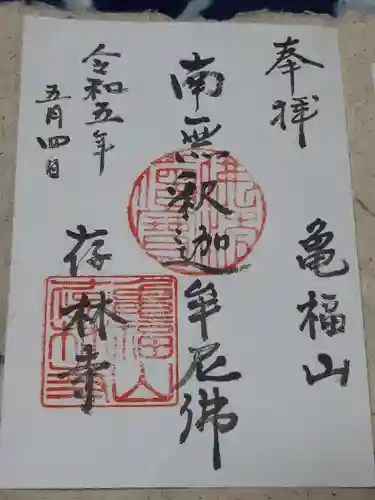 奉拝
亀福山
南無釈迦牟尼佛
存林寺
令和五年
五月四日
佛法僧寶